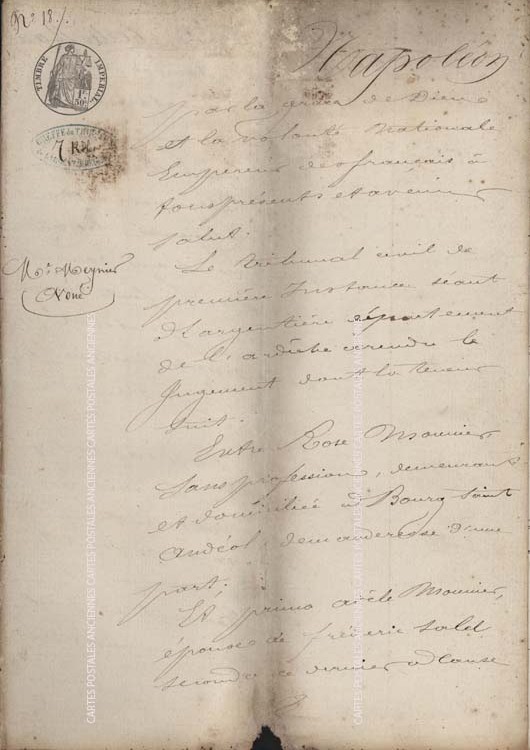 N° 18.
TIMBRE IMPERIAL
1F 50c
Napoléon
par la grace de Dieu
et la volonté Nationale
Empereur des français à
tous présents et avenir
Salut.
Le tribunal civil de
première Instance séant
à Largentière département
de l'ardèche a rendu le
Jugement dont la teneur
suit.
Mr Meynier
Entre Rose Mounier,
Sans profession, demeurant
et domiciliée à Bourg Saint
Andéol, demanderesse d'une
part;
Et primo Mounier,
épouse de fréderic
secondo ce dernier
CARTES POSTALES ANCIENNES CARTES POSTALES ANCIENNES CARTES POSTALES ANCIENNES
CARTES POSTALES ANCIENNES CARTES POSTALES ANCIENNES CARTES POSTALES ANCIENNES